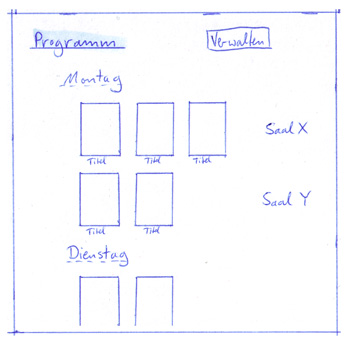 Programm Verwalten
Montag
Saal X
Titel Titel Titel
Saal Y
Titel Titel
Dienstag